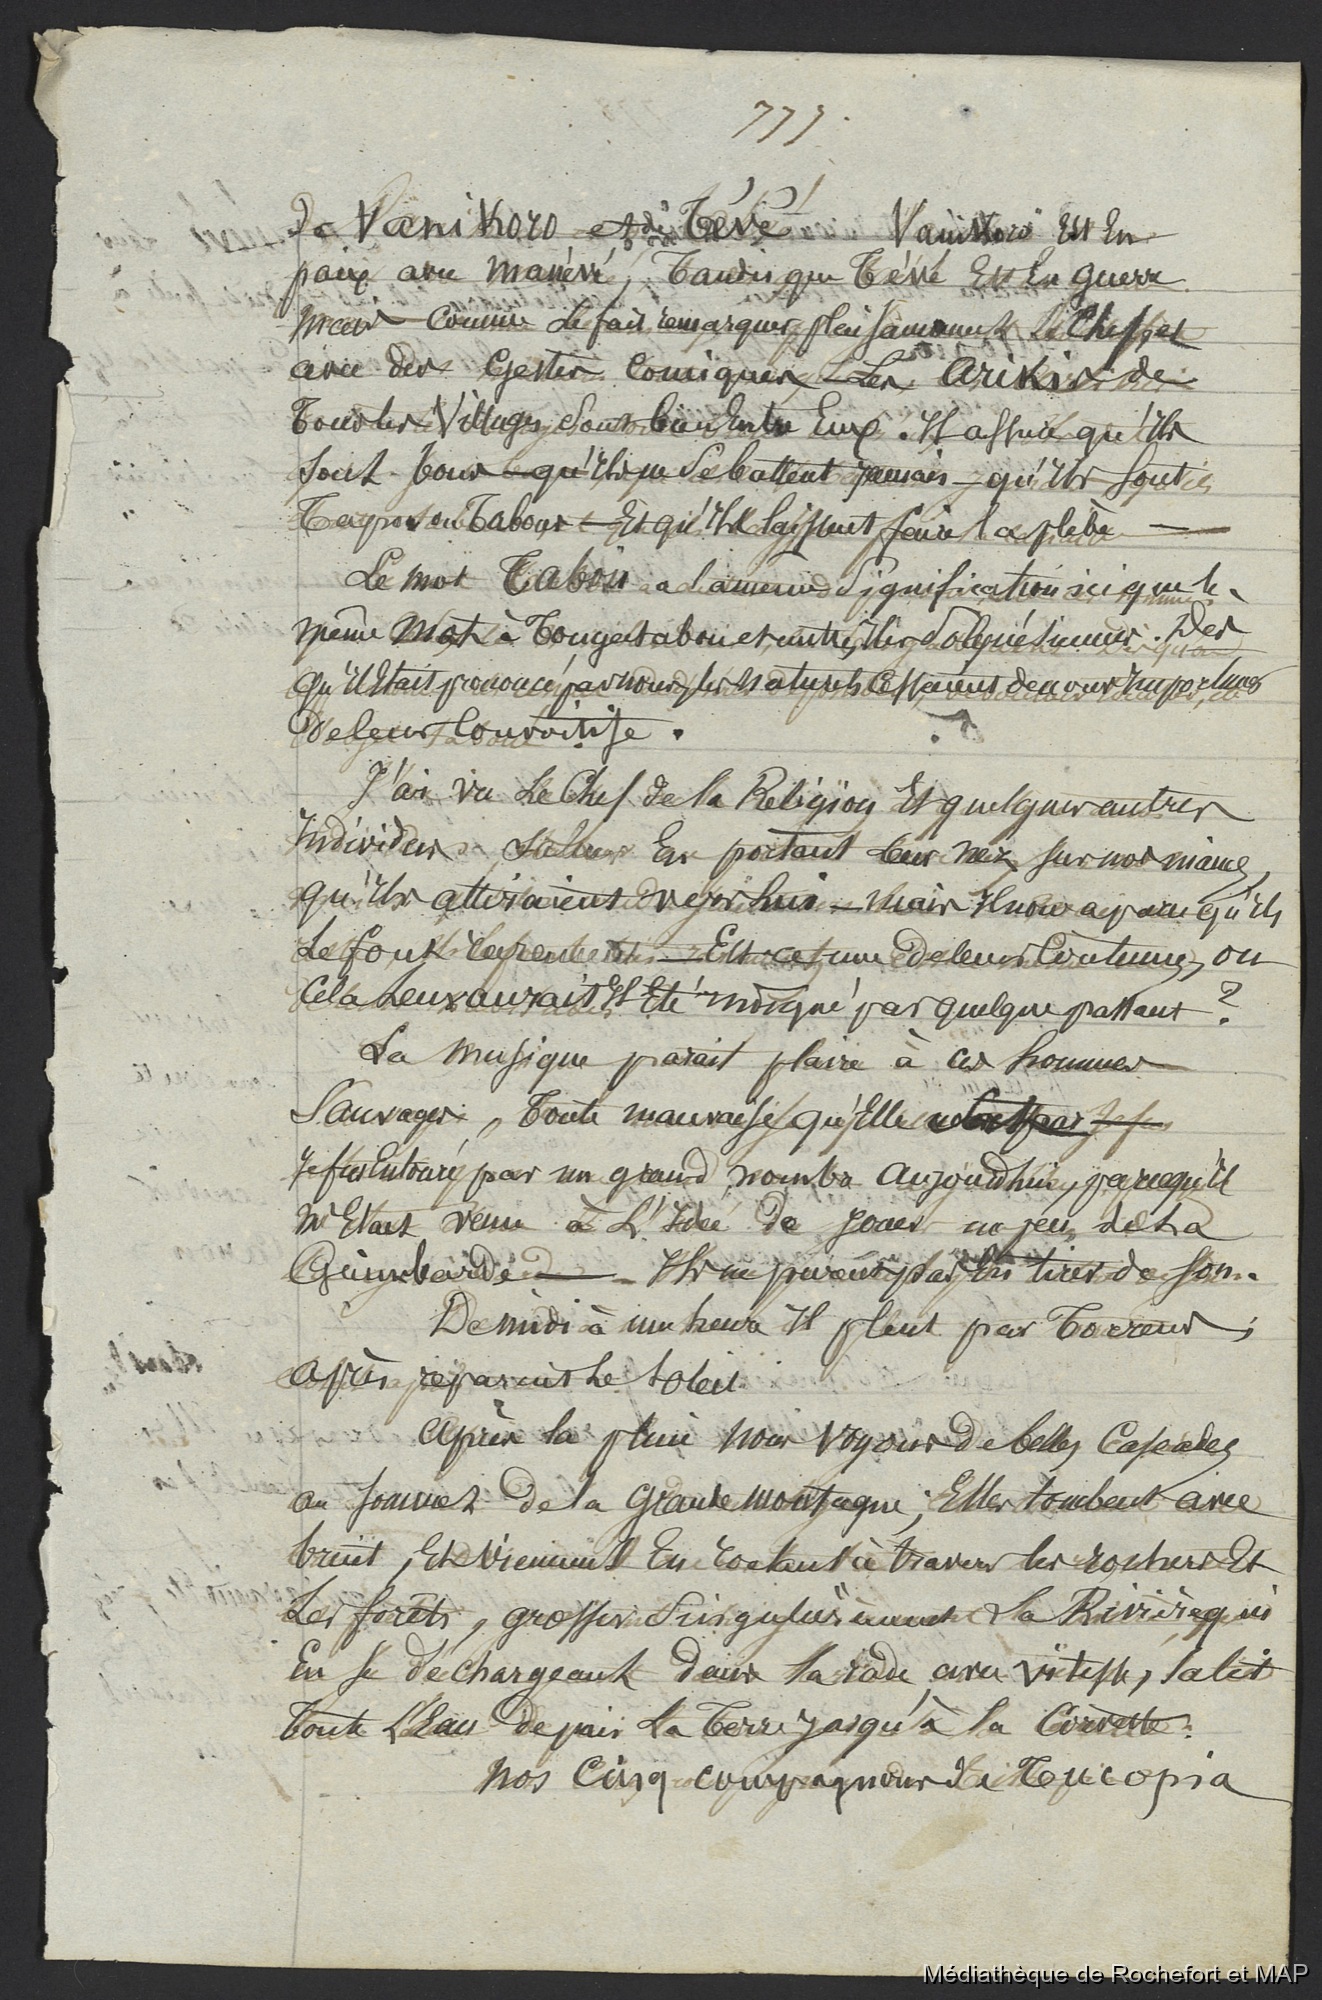 773.
de Vanikoro et de Tévé. Vanikoro Est En
paix avec Manévé, Tandis que Tévé Est En guerre
mais comme le fait remarquer plaisamment le Chef, et
avec des Gestes Comiques, Les Arikis de
Tous les Villages sont bien Entre Eux. Il assure qu'ils
sont bons qu'ils ne se battent jamais qu'ils sont
Tapos ou Tabous Et qu'ils laissent faire la plèbe
Le mot Tabou a la même signification ici que le
même Mot à Tongatabou et autres îles Polynésiennes. Dès
qu'il Etait prononcé par nous, les naturels cessaient de nous importuner
De leur Convoitise.
J'ai vu Le Chef de la Religion Et quelques autres
individus saluer En portant leur nez sur nos mains,
qu'ils attiraient vers lui mais Il nous a paru qu'ils
Le font Est-ce une de leurs Coutumes, ou
Cela Leur aurait Il Eté par quelque passant ?
La Musique parait plaire à ces hommes
Sauvages, Toute mauvaise qu'Elle
Je fus Entouré par un grand nombre Aujourd'hui, parcequ'il
m'Etait venu à L'Idée de jouer un peu de La
Guimbarde Ils ne purent pas En tirer de son.
De midi à une heure Il pleut par Torrens,
après reparait Le soleil
Après la pluie Nous Voyons De belles Cascades
au sommet de la Grande montagne; Elles tombent avec
bruit, Et Viennent En roulant à travers les rochers Et
Les forêts, grossir singulièrement La Rivière qui
En se déchargeant dans la rade avec vitesse, salit
toute L'Eau depuis La Terre jusqu'à la Corvette.
Nos Cinq compagnons de Tucopia
Médiathèque de Rochefort et MAP